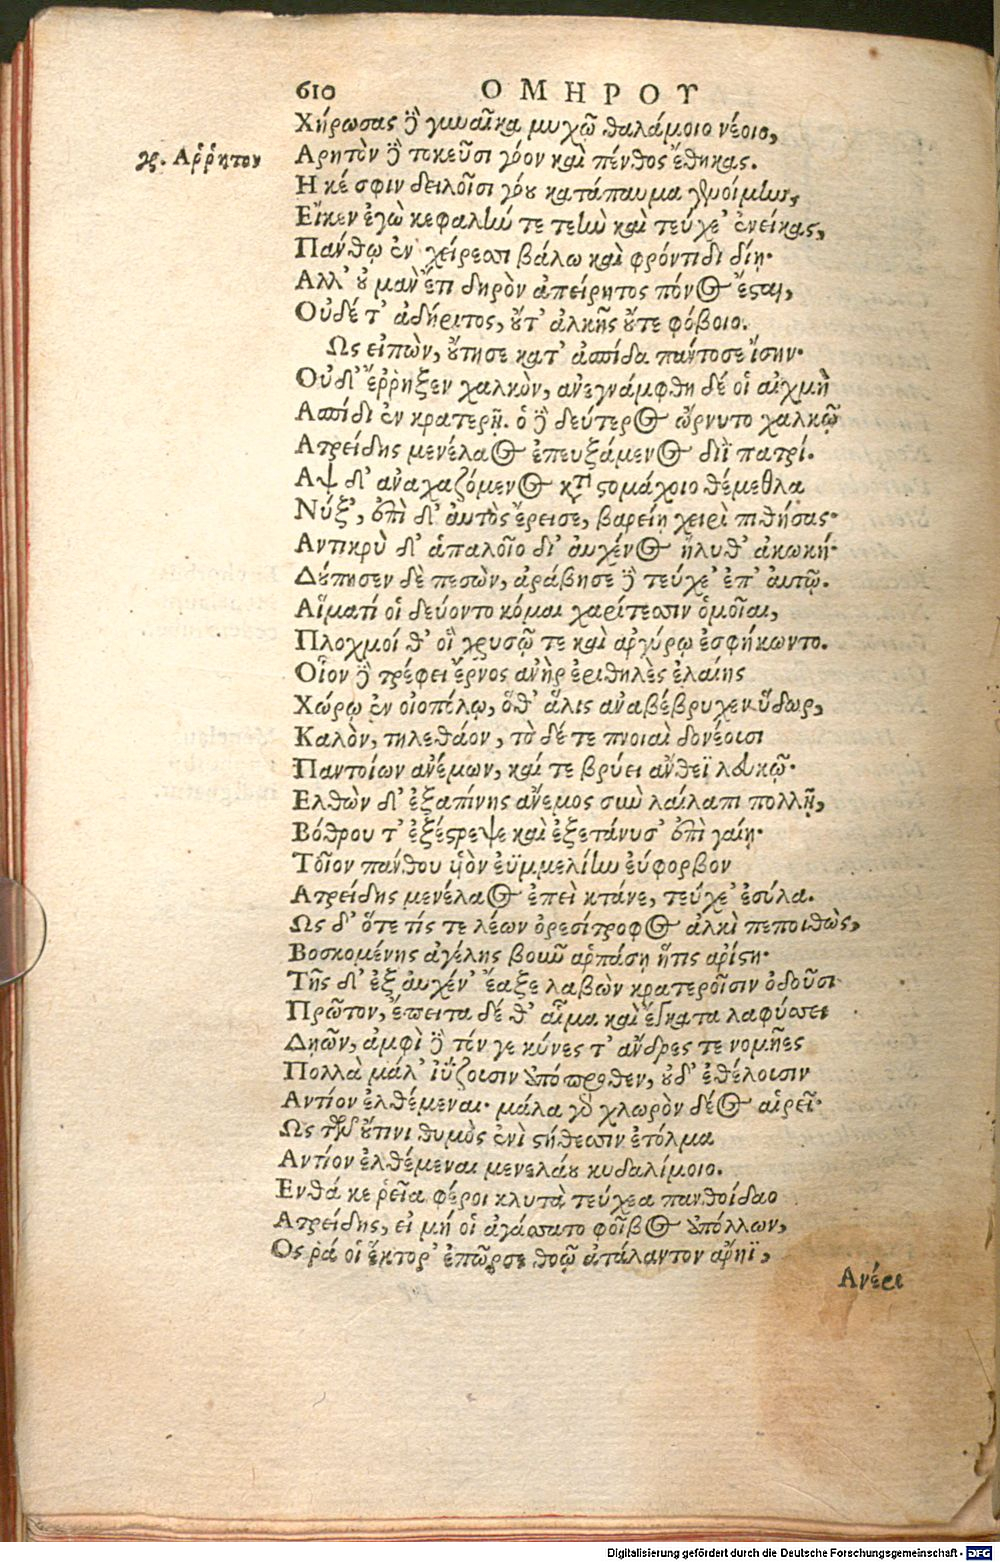 610 ΟΜΗΡΟΥ
Χήρωσας δὲ γυναῖκα μυχῷ θαλάμοιο νέοιο,
γρ. Αῤῥητον
Αρητὸν δὲ τοκεῦσι γόον καὶ πένθος ἔθηκας.
Η κέ σφιν δειλοῖσι γόου κατάπαυμα γενοίμην,
Εἴκεν ἐγὼ κεφαλήν τε τεὴν καὶ τεύχε' ἐνείκας,
Πάνθῳ ἐν χείρεσσι βάλω καὶ φρόντιδι δίῃ·
Αλλ' οὐ μὰν ἔτι δηρὸν ἀπείρητος πόνος ἔσται,
Οὐδέ τ' ἀδήριτος, οὔτ' ἀλκῆς οὔτε φόβοιο.
Ως εἰπὼν, οὔτησε κατ' ἀσπίδα πάντοσε ἴσην·
Οὐδ' ἔῤῥηξεν χαλκὸν, ἀνεγνάμφθη δέ οἱ αἰχμὴ
Ασπίδι ἐν κρατερῇ. ὁ δὲ δεύτερος ὤρνυτο χαλκῷ
Ατρείδης μενέλαος ἐπευξάμενος διῒ πατρί.
Αψ δ' ἀναχαζόμενος κατὰ στομάχοιο θέμεθλα
Νύξ', ἐπὶ δ' αὐτὸς ἔρεισε, βαρείῃ χειρὶ πιθήσας·
Αντικρὺ δ' ἁπαλοῖο δι' αὐχένος ἤλυθ' ἀκωκή·
Δούπησεν δὲ πεσὼν, ἀράβησε δὲ τεύχε' ἐπ' αὐτῷ.
Αἵματί οἱ δεύοντο κόμαι χαρίτεσσιν ὁμοῖαι,
Πλοχμοί θ' οἳ χρυσῷ τε καὶ ἀργύρῳ ἐσφήκωντο.
Οἷον δὲ τρέφει ἔρνος ἀνὴρ ἐριθηλὲς ἐλαίης
Χώρῳ ἐν οἰοπόλῳ, ὅθ' ἅλις ἀναβέβρυχεν ὕδωρ,
Καλὸν, τηλεθάον, τὸ δέ τε πνοιαὶ δονέουσι
Παντοίων ἀνέμων, καί τε βρύει ἄνθεϊ λευκῷ·
Ελθὼν δ' ἐξαπίνης ἄνεμος σὺν λαίλαπι πολλῇ,
Βόθρου τ' ἐξέστρεψε καὶ ἐξετάνυσ' ἐπὶ γαίῃ·
Τοῖον πάνθου υἱὸν ἐϋμμελίην εὔφορβον
Ατρείδης μενέλαος ἐπεὶ κτάνε, τεύχε' ἐσύλα.
Ως δ' ὅτε τίς τε λέων ὀρεσίτροφος ἀλκὶ πεποιθὼς,
Βοσκομένης ἀγέλης βοῦν ἁρπάσῃ ἥτις ἀρίστη·
Τῆς δ' ἐξ αὐχέν' ἔαξε λαβὼν κρατεροῖσιν ὀδοῦσι
Πρῶτον, ἔπειτα δέ θ' αἷμα καὶ ἔγκατα λαφύσσει
Δῃῶν, ἀμφὶ δὲ τόν γε κύνες τ' ἄνδρες τε νομῆες
Πολλὰ μάλ' ἰΰζουσιν ἀπόπροθεν, οὐδ' ἐθέλουσιν
Αντίον ἐλθέμεναι· μάλα γὰρ χλωρὸν δέος αἱρεῖ·
Ως τῶν οὔτινι θυμὸς ἐνὶ στήθεσσιν ἐτόλμα
Αντίον ἐλθέμεναι μενελάου κυδαλίμοιο.
Ενθά κε ῥεῖα φέροι κλυτὰ τεύχεα πανθοίδαο
Ατρείδης, εἰ μή οἱ ἀγάσσατο φοῖβος ἀπόλλων,
Ος ῥά οἱ ἕκτορ' ἐπῶρσε θοῷ ἀτάλαντον ἄρηϊ,
Ανέρι
Digitalisierung gefördert durch die Deutsche Forschungsgemeinschaft - DFG